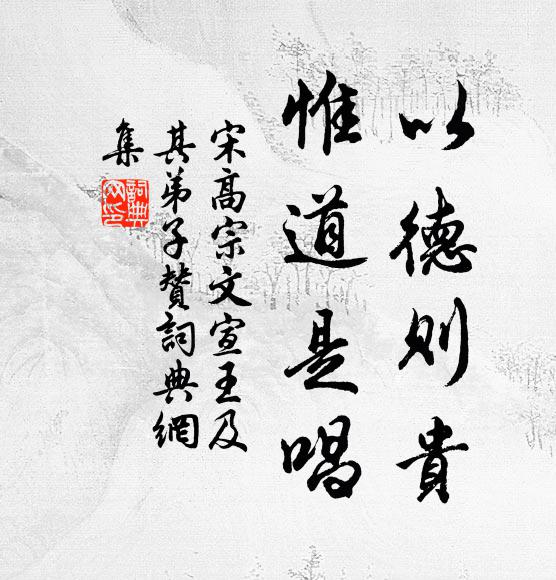 以德則貴
惟道是唱
宋高宗文宣王及
其弟子贊詞典網
集
詞典
网印